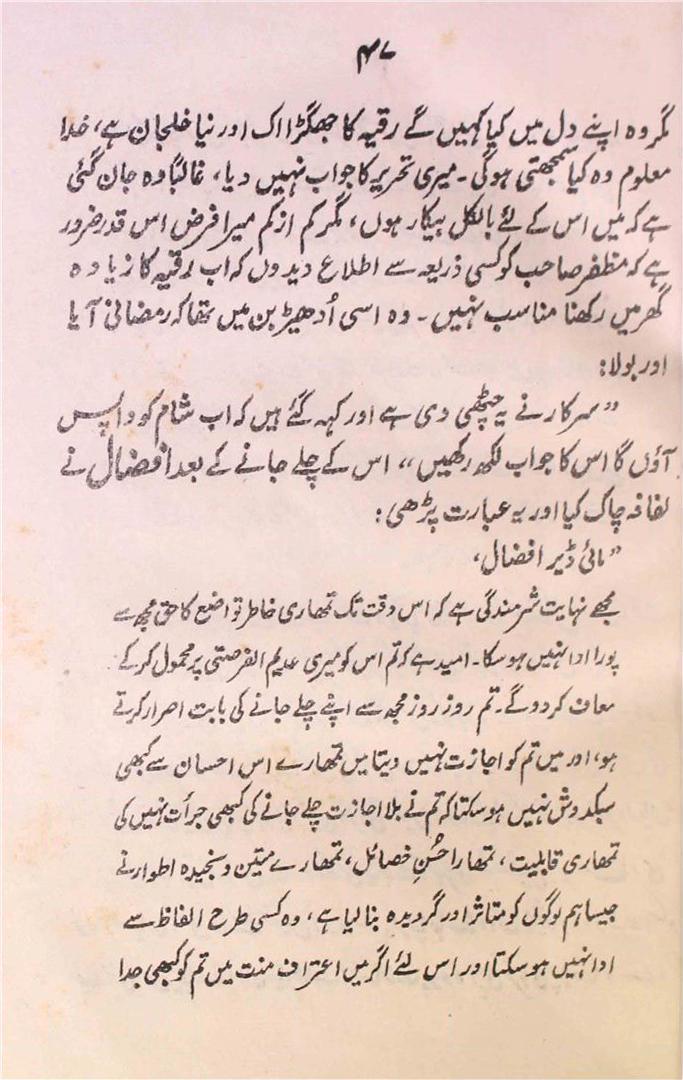 ۴۷
مگر وہ اپنے دل میں کیا کہیں گے رقیہ کا جھگڑا اک اور نیا خلجان ہے، خدا
معلوم وہ کیا سمجھتی ہوگی۔ میری تحریر کا جواب نہیں دیا، غالباً وہ جان گئی
ہے کہ میں اس کے لئے بالکل بیکار ہوں، مگر کم از کم میرا فرض اس قدر ضرور
ہے کہ مظفر صاحب کو کسی ذریعہ سے اطلاع دیدوں کہ اب رقیہ کا زیادہ
گھر میں رکھنا مناسب نہیں۔ وہ اسی اُدھیڑ بن میں تھا کہ رمضانی آیا
اور بولا:
"سرکار نے یہ چٹھی دی ہے اور کہہ گئے ہیں کہ اب شام کو واپس
آؤں گا اس کا جواب لکھ رکھیں" اس کے چلے جانے کے بعد افضال نے
لفافہ چاک کیا اور یہ عبارت پڑھی:
"مائی ڈیر افضال،
مجھے نہایت شرمندگی ہے کہ اس وقت تک تمھاری خاطر تواضع کا حق مجھ سے
پورا ادا نہیں ہو سکا۔ امید ہے کہ تم اس کو میری عدیم الفرصتی پر محمول کر کے
معاف کر دو گے۔ تم روز روز مجھ سے اپنے چلے جانے کی بابت اصرار کرتے
ہو، اور میں تم کو اجازت نہیں دیتا میں تمھارے اس احسان سے کبھی
سبکدوش نہیں ہو سکتا کہ تم نے بلا اجازت چلے جانے کی کبھی جرأت نہیں کی
تمھاری قابلیت، تمھارا حُسنِ خصائل، تمھارے متین و سنجیدہ اطوار نے
جیسا ہم لوگوں کو متاثر اور گرویدہ بنا لیا ہے، وہ کسی طرح الفاظ سے
ادا نہیں ہو سکتا اور اس لئے اگر میں اعترافِ منت میں تم کو کبھی جدا